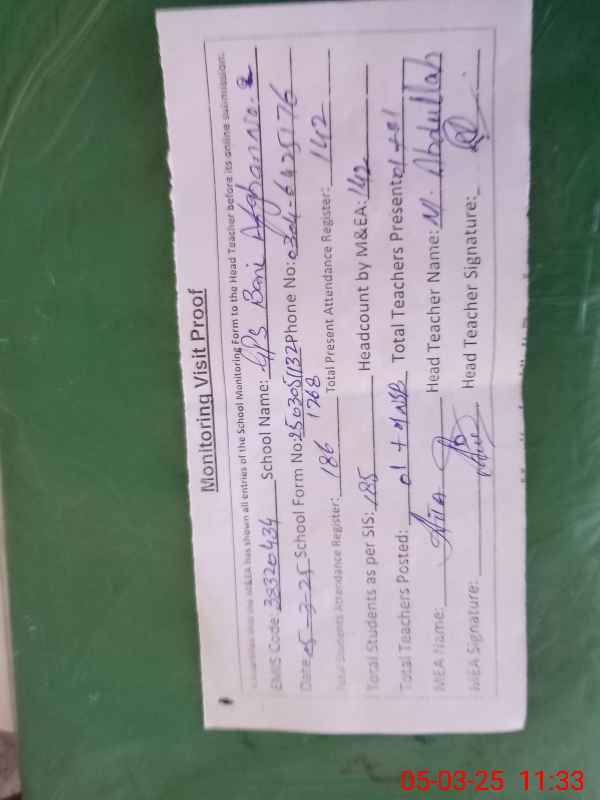 Monitoring Visit Proof
the M&EA has shown all entries of the School Monitoring Form to the Head Teacher before its online submission.
EMIS Code: 32320434 School Name: GPS Bani Afghan No. 2
Date: 05-3-25 School Form No: 250305113217268 Phone No: 0304-6425176
Total Students Attendance Register: 186 Total Present Attendance Register: 142
Total Students as per SIS: 185 Headcount by M&EA: 142
Total Teachers Posted: 01 + 01 Total Teachers Present: 01 + 01
MEA Name: Head Teacher Name: M. Abdullah
MEA Signature: Head Teacher Signature:
05-03-25 11:33